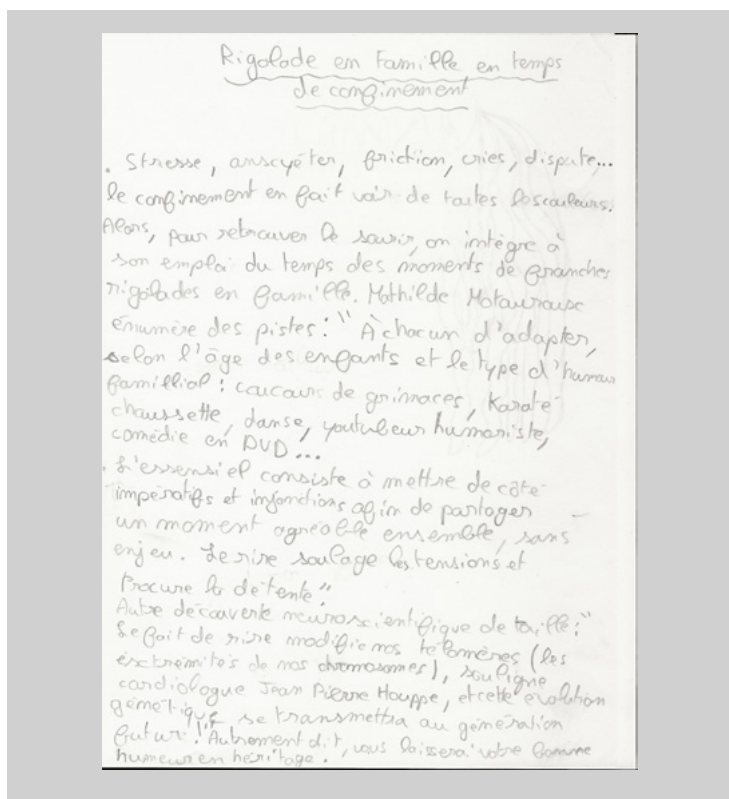 Rigolade en Famille, en temps
de confinement
. Stresse, anscyéter, friction, cries, dispute...
le confinement en fait voir de toutes les couleurs.
Alors, pour retrouver le sourir, on intègre à
son emploi du temps des moments de franches
rigolades en famille. Mathilde
énumère des pistes : " À chacun d'adapter,
selon l'âge des enfants et le type d'humour
famillial : coucours de grimaces, Karaté
chaussette, danse, youtubeur humoriste,
comédie en DVD...
. L'essensiel consiste à mettre de côté
impératifs et injonctions afin de partager
un moment agréable ensemble, sans
enjeu. Le rire soulage les tensions et
Procure la détente "
Autre découverte neuroscientifique de taille : "
Le fait de rire modifie nos télomères (les
éxctrémités de nos chromosomes), souligne
cardiologue Jean Pierre Houppe, et cette évolution
génétique se transmettra au génération
futur ! Autrement dit, vous laissera votre bonne
humeur en héritage.